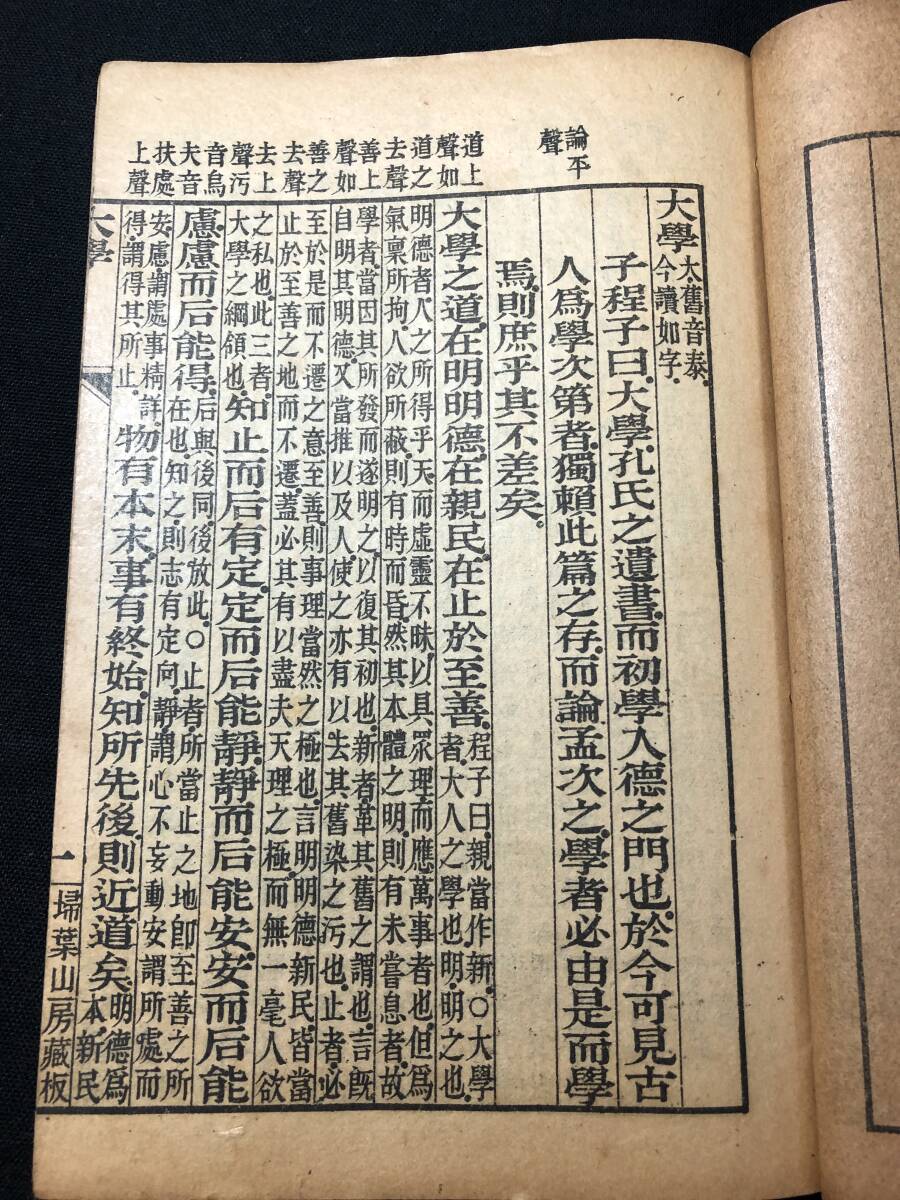 論平
聲
道上
聲如
道之
去聲
善上
聲如
善之
去聲
去上
聲污
音烏
夫音
扶處
上聲
大學 太舊音泰。
今讀如字。
子程子曰。大學。孔氏之遺書。而初學入德之門也。於今可見古
人爲學次第者。獨賴此篇之存。而論孟次之。學者必由是而學
焉。則庶乎其不差矣。
大學之道。在明明德。在親民。在止於至善。程子曰。親當作新。○大學
者。大人之學也。明。明之也。
明德者。人之所得乎天。而虛靈不昧。以具眾理。而應萬事者也。但爲
氣稟所拘。人欲所蔽。則有時而昏。然其本體之明。則有未嘗息者。故
學者當因其所發。而遂明之。以復其初也。新者。革其舊之謂也。言旣
自明其明德。又當推以及人。使之亦有以去其舊染之污也。止者。必
至於是而不遷之意。至善。則事理當然之極也。言明明德新民。皆當
止於至善之地而不遷。蓋必其有以盡夫天理之極。而無一毫人欲
之私也。此三者。
大學之綱領也。知止而后有定。定而后能靜。靜而后能安。安而后能
慮。慮而后能得。后與後同。後放此。○止者。所當止之地。卽至善之所
在也。知之。則志有定向。靜。謂心不妄動。安。謂所處而
安。慮。謂處事精詳。
得。謂得其所止。物有本末。事有終始。知所先後。則近道矣。明德爲
本。新民
大學 一 埽葉山房藏板